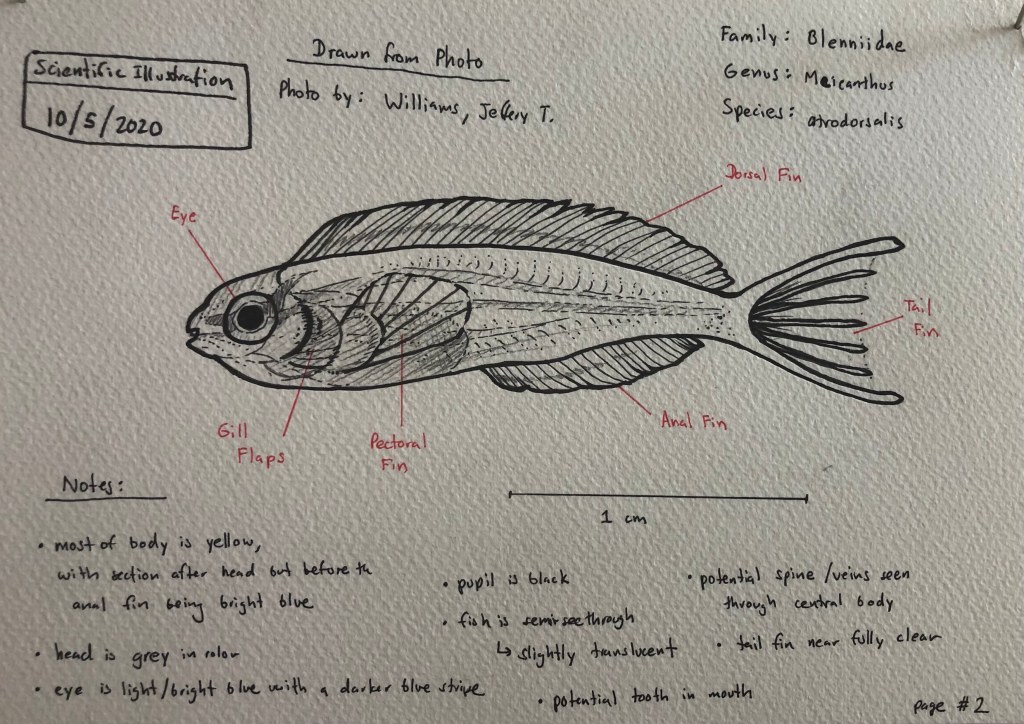 Scientific Illustration
10/5/2020
Drawn from Photo
Photo by: Williams, Jeffery T.
Family: Blenniidae
Genus: Meicanthus
Species: atrodorsalis
Eye
Dorsal Fin
Tail
Fin
Gill
Flaps
Pectoral
Fin
Anal Fin
1 cm
Notes:
• most of body is yellow,
with section after head but before th
anal fin being bright blue
• head is grey in color
• eye is light/bright blue with a darker blue stripe
• pupil is black
• fish is semi seethrough
↳ slightly translucent
• potential tooth in mouth
• potential spine/veins seen
through central body
• tail fin near fully clear
page #2